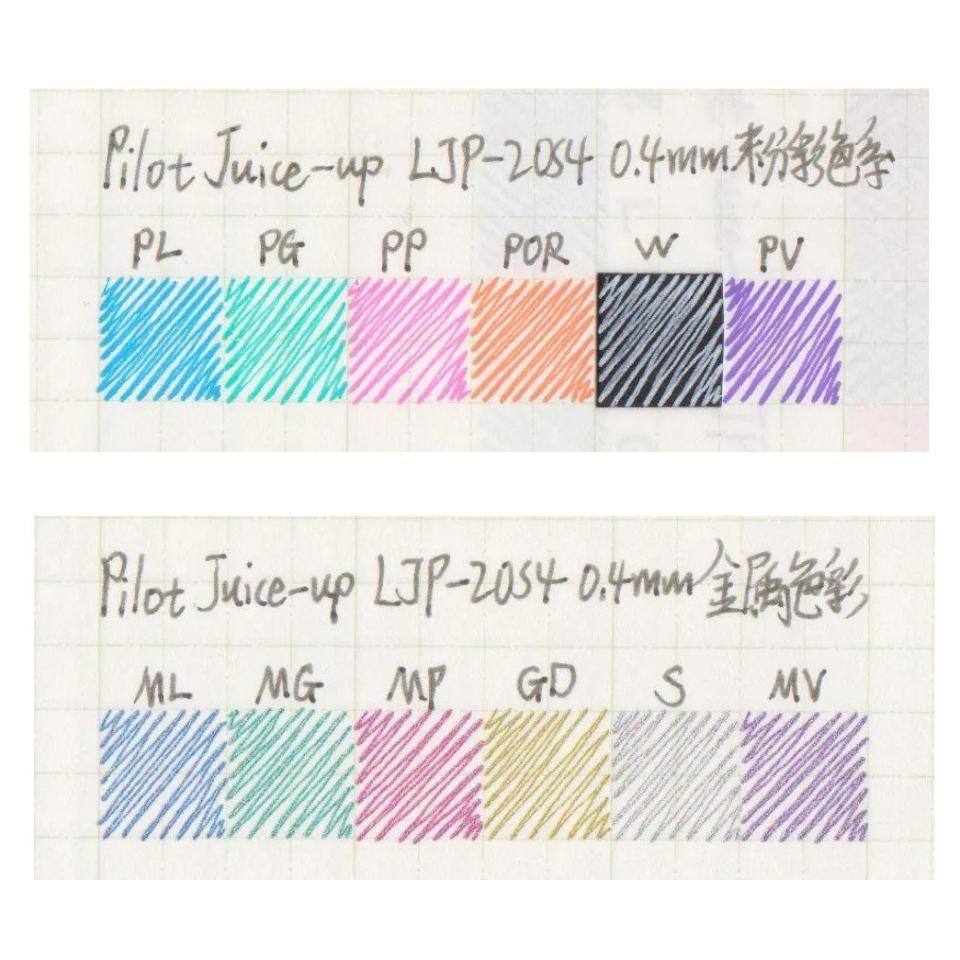 Pilot Juice-up LJP-20S4 0.4mm 粉彩色系
PL PG PP POR W PV
Pilot Juice-up LJP-20S4 0.4mm 金属色彩
ML MG MP GD S MV